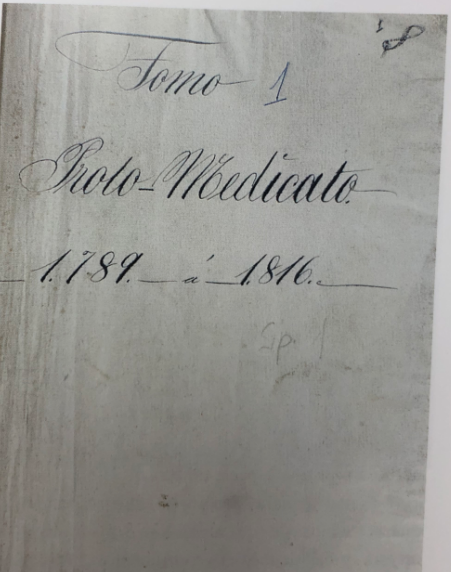 8
Tomo 1
Proto-Medicato.
1.789. á 1.816.